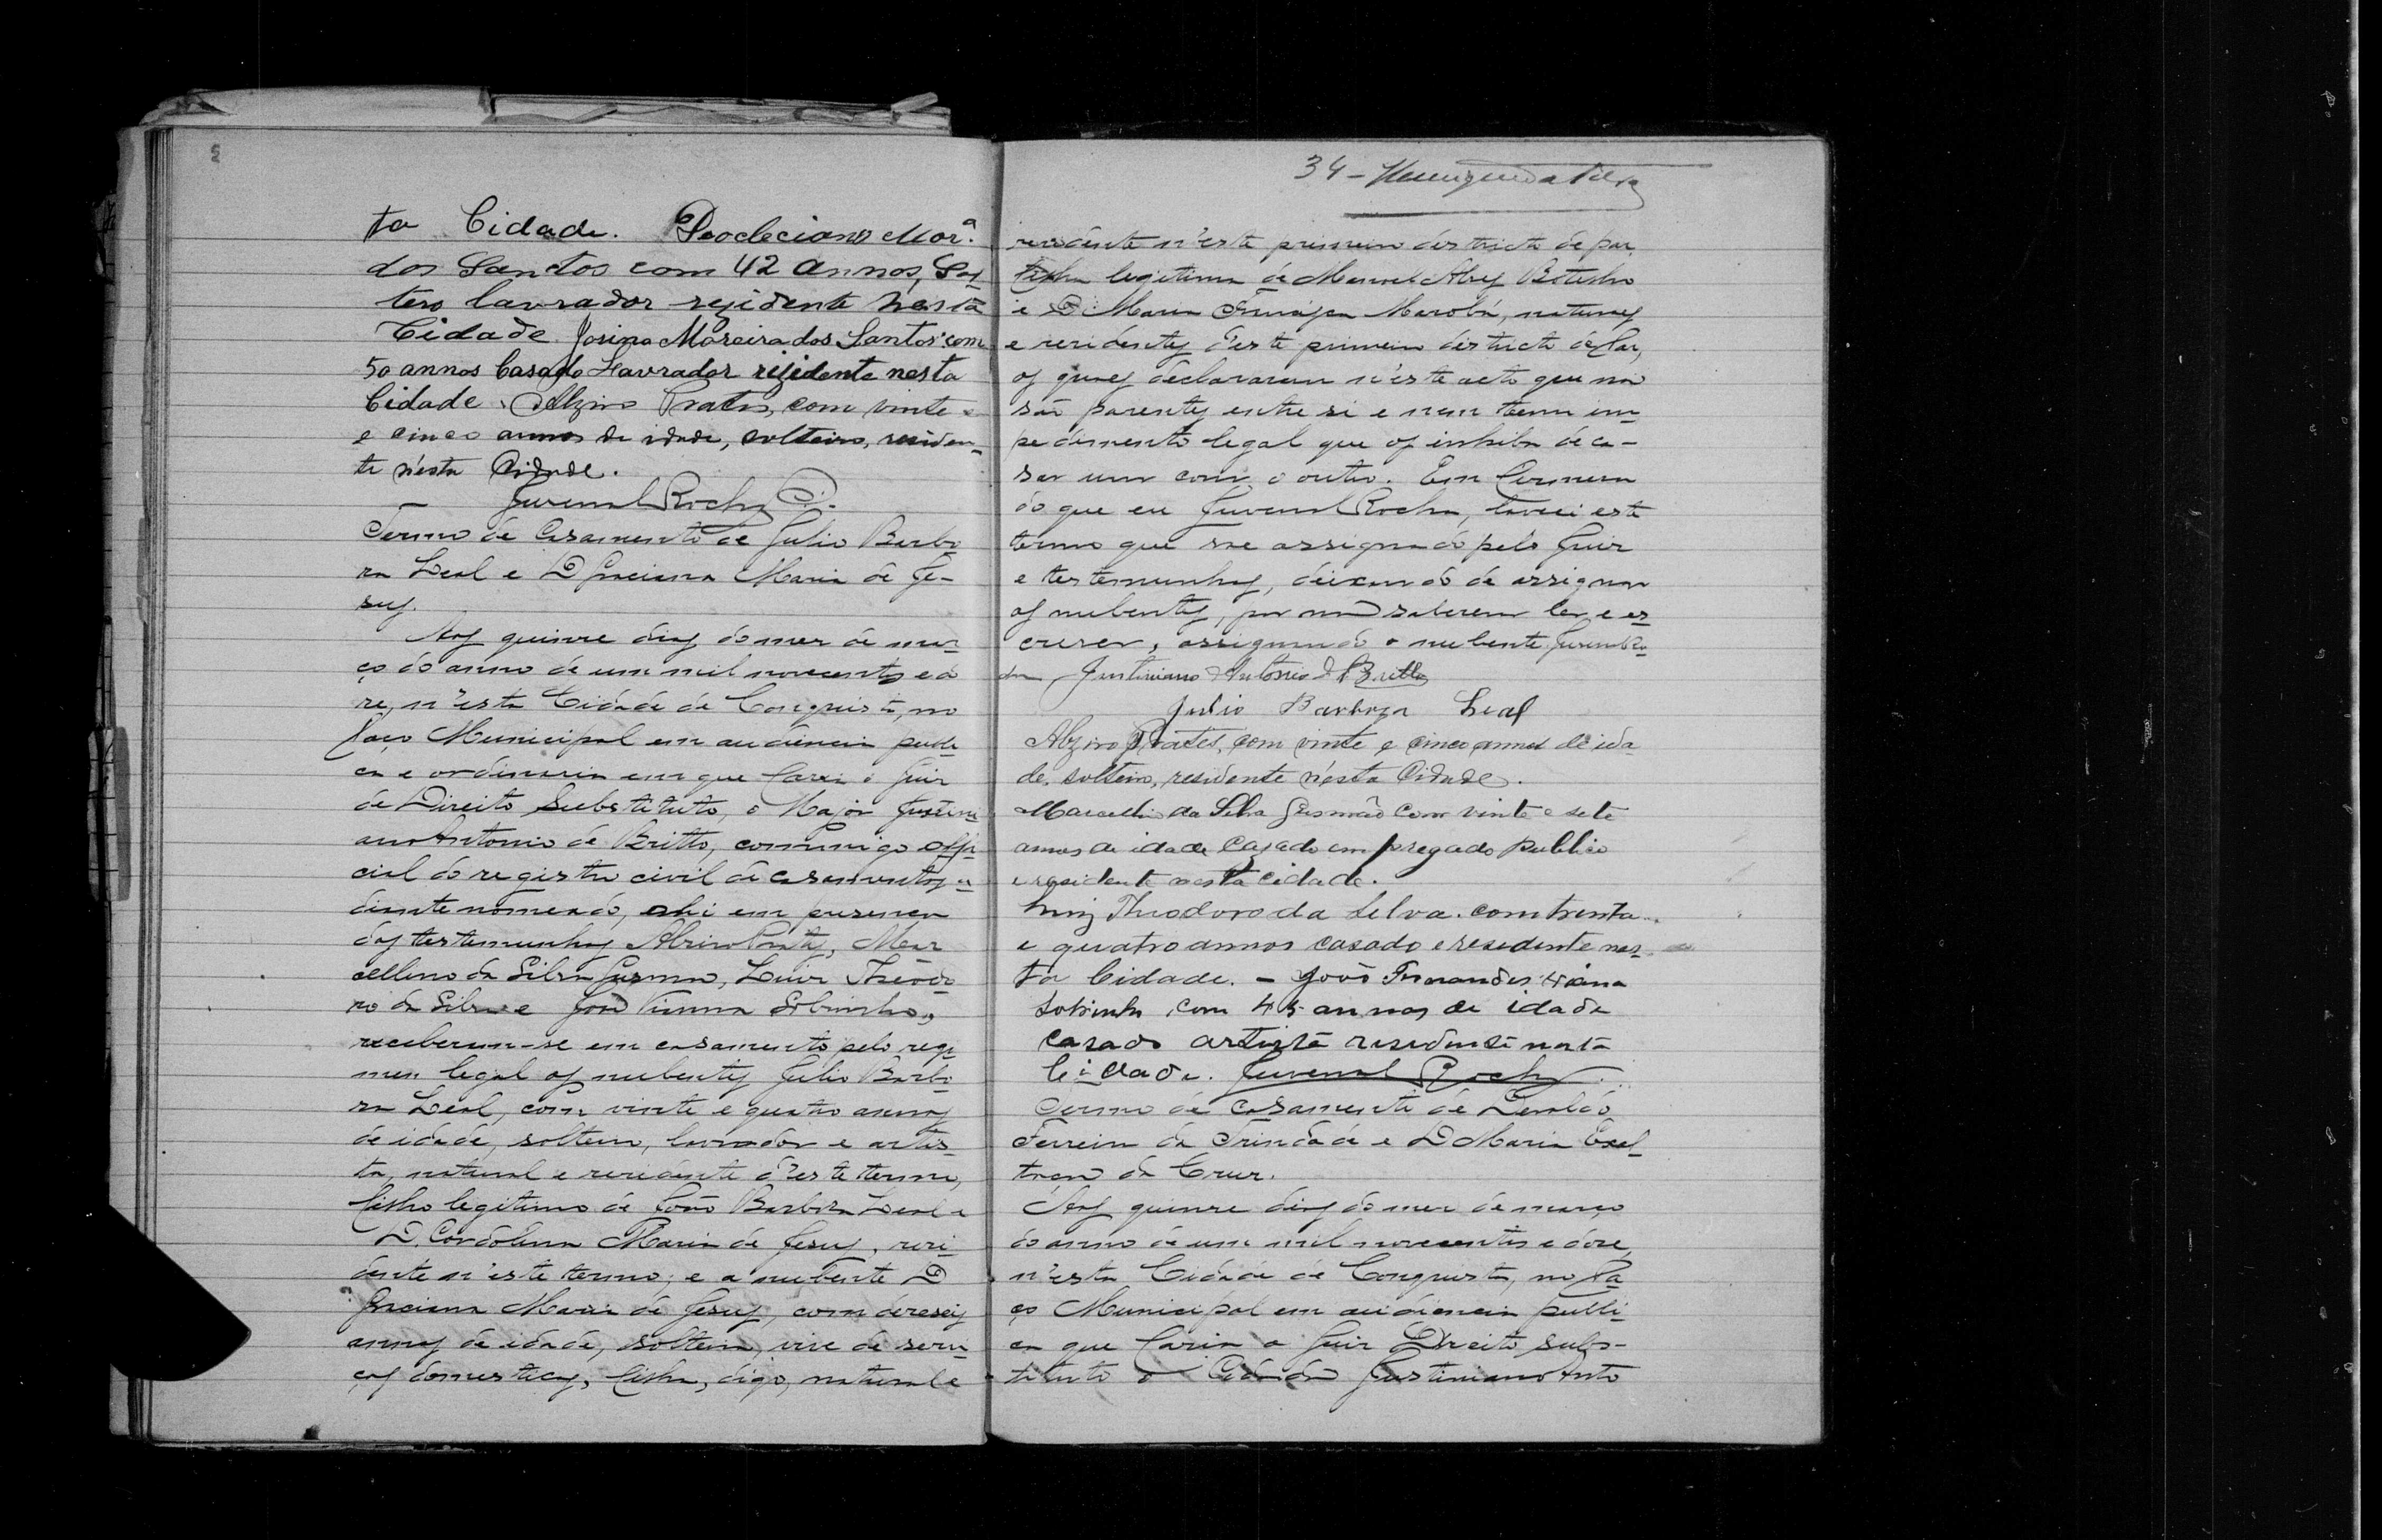 ta Cidade. Deocleciano Morª.
dos Santos com 42 annos, Sol
tero lavrador rejidente nesta
Cidade Josino Moreira dos Santos com
50 annos Casado Lavrador rijidente nesta
Cidade. Alziro Prates, com vinte e
e cinco annos de idade, solteiro, residen-
te n'esta Cidade.
Juvenal Rocha
Termo de Casamento de Julio Barbo
za Leal e D Graciana Maria de Je-
sus.
Aos quinze dias do mez de mar-
ço do anno de um mil novecentos e do
ze, n'esta Cidade de Conquista, no
Paço Municipal em audiencia publi
ca e ordinaria em que fazia o Juiz
de Direito Substituto, o Major Justini
ano Antonio de Britto, commigo offi-
cial do registro civil de casamentos a
diante nomeado, ahi em presença
das testemunhas Alziro Prates, Mar
cellino da Silva Gusmão, Luiz Theodo-
ro da Silva e João Vianna Sobrinho,
receberam-se em casamento pelo regi-
men legal os nubentes Julio Barbo
za Leal, com vinte e quatro annos
de idade, solteiro, lavrador e artis-
ta, natural e rezidente d'este termo,
filho legitimo de João Barboza Leal e
D. Cordolina Maria de Jesus, rezi-
dente n'este termo; e a nubente D
Graciana Maria de Jesus, com dezeseis
annos de idade, solteira, vive de servi-
ços domesticos, filha, digo, natural e
34 -
rezidente n'este primeiro districto de paz,
filha legitima de Manoel Alves Botelho
e D. Maria Marobá, naturaes
e rezidentes d'este primeiro districto de Paz,
os quaes declararam n'este acto que não
são parentes entre si e nem teem im-
pedimento legal que os inhiba de ca-
sar um com o outro. Em firmeza
do que eu Juvenal Rocha, lavrei este
termo que vae assignado pelo Juiz
e testemunhas, deixando de assignar
os nubentes, por não saberem ler e es
crever, assignando o nubente
Justiniano Antonio d Britto
Julio Barboza Leal
Alziro Prates, com vinte e cinco annos de ida
de, solteiro, residente n'esta Cidade.
Marcellino da Silva Gusmão com vinte e sete
annos de idade Cazado empregado publico
e residente nesta cidade.
Luiz Theodoro da Silva. com trenta
e quatro annos casado e residente nes-
ta Cidade. - João Fernandes Viana
Sobrinho com 45 annos de idade
casado artista residente nesta
Cidade. Juvenal Rocha
Termo de casamento de
Ferreira da Trindade e D Maria
da Cruz.
Aos quinze dias do mez de março
do anno de um mil novecentos e doze,
n'esta Cidade de Conquista, no Pa
ço Municipal em audiencia publi
ca que fazia o Juiz Direito subs-
tituto o Cidadão Justiniano Anto